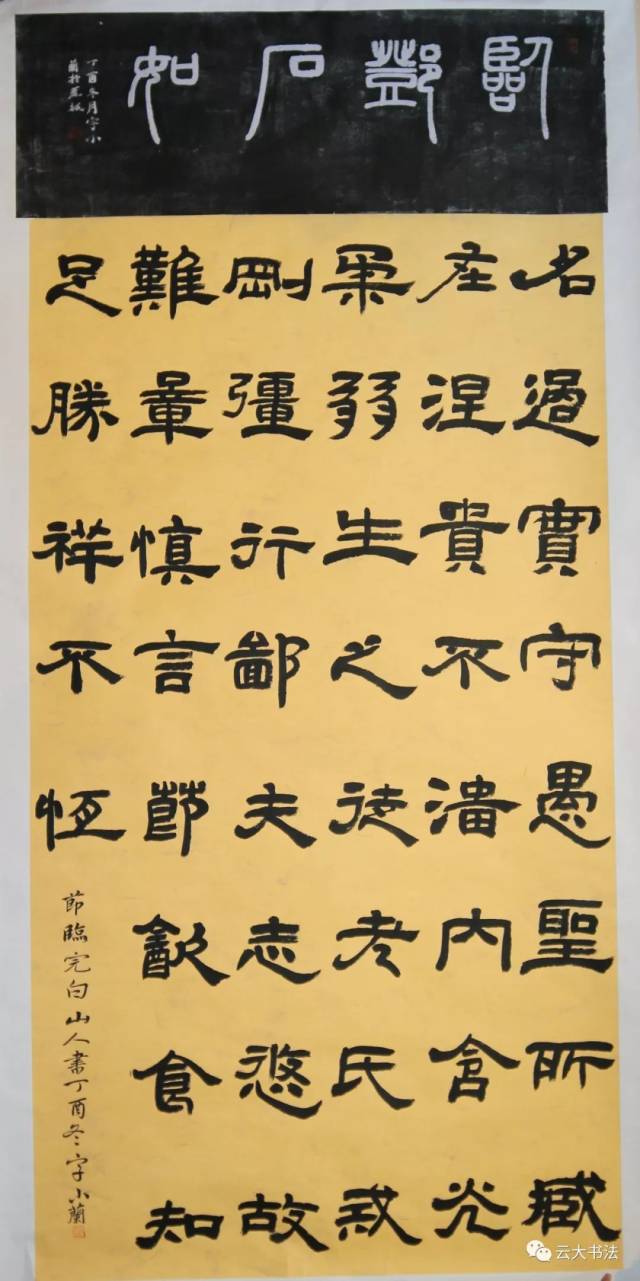 臨鄧石如
丁酉冬月字小
蘭於
名過實守愚聖所臧
在涅貴不淄內含光
柔弱生之徒老氏戒
剛彊行鄙夫志悠故
難量慎言節飲食知
足勝祥不恆
節臨完白山人書丁酉冬字小蘭
云大书法